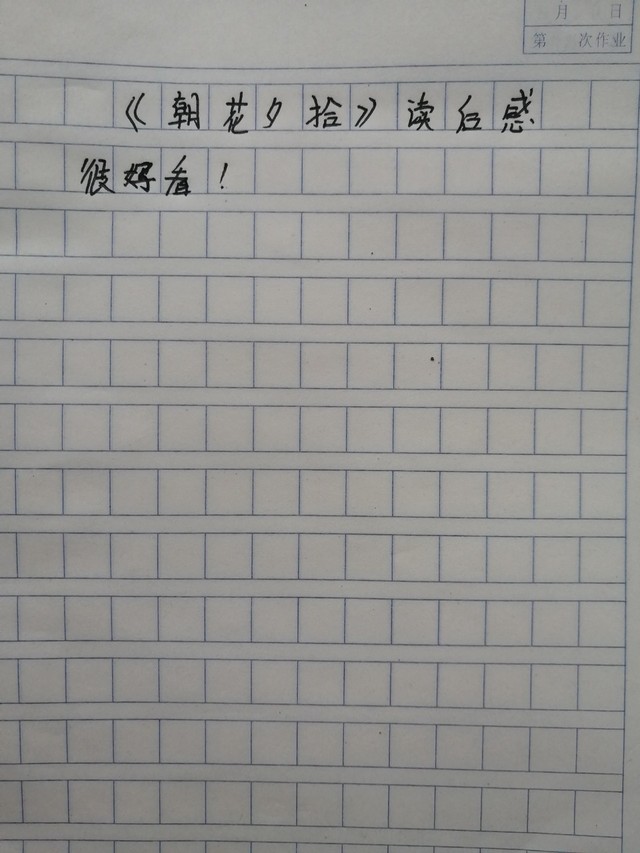 月 日
第 次作业
《朝花夕拾》读后感
很好看！